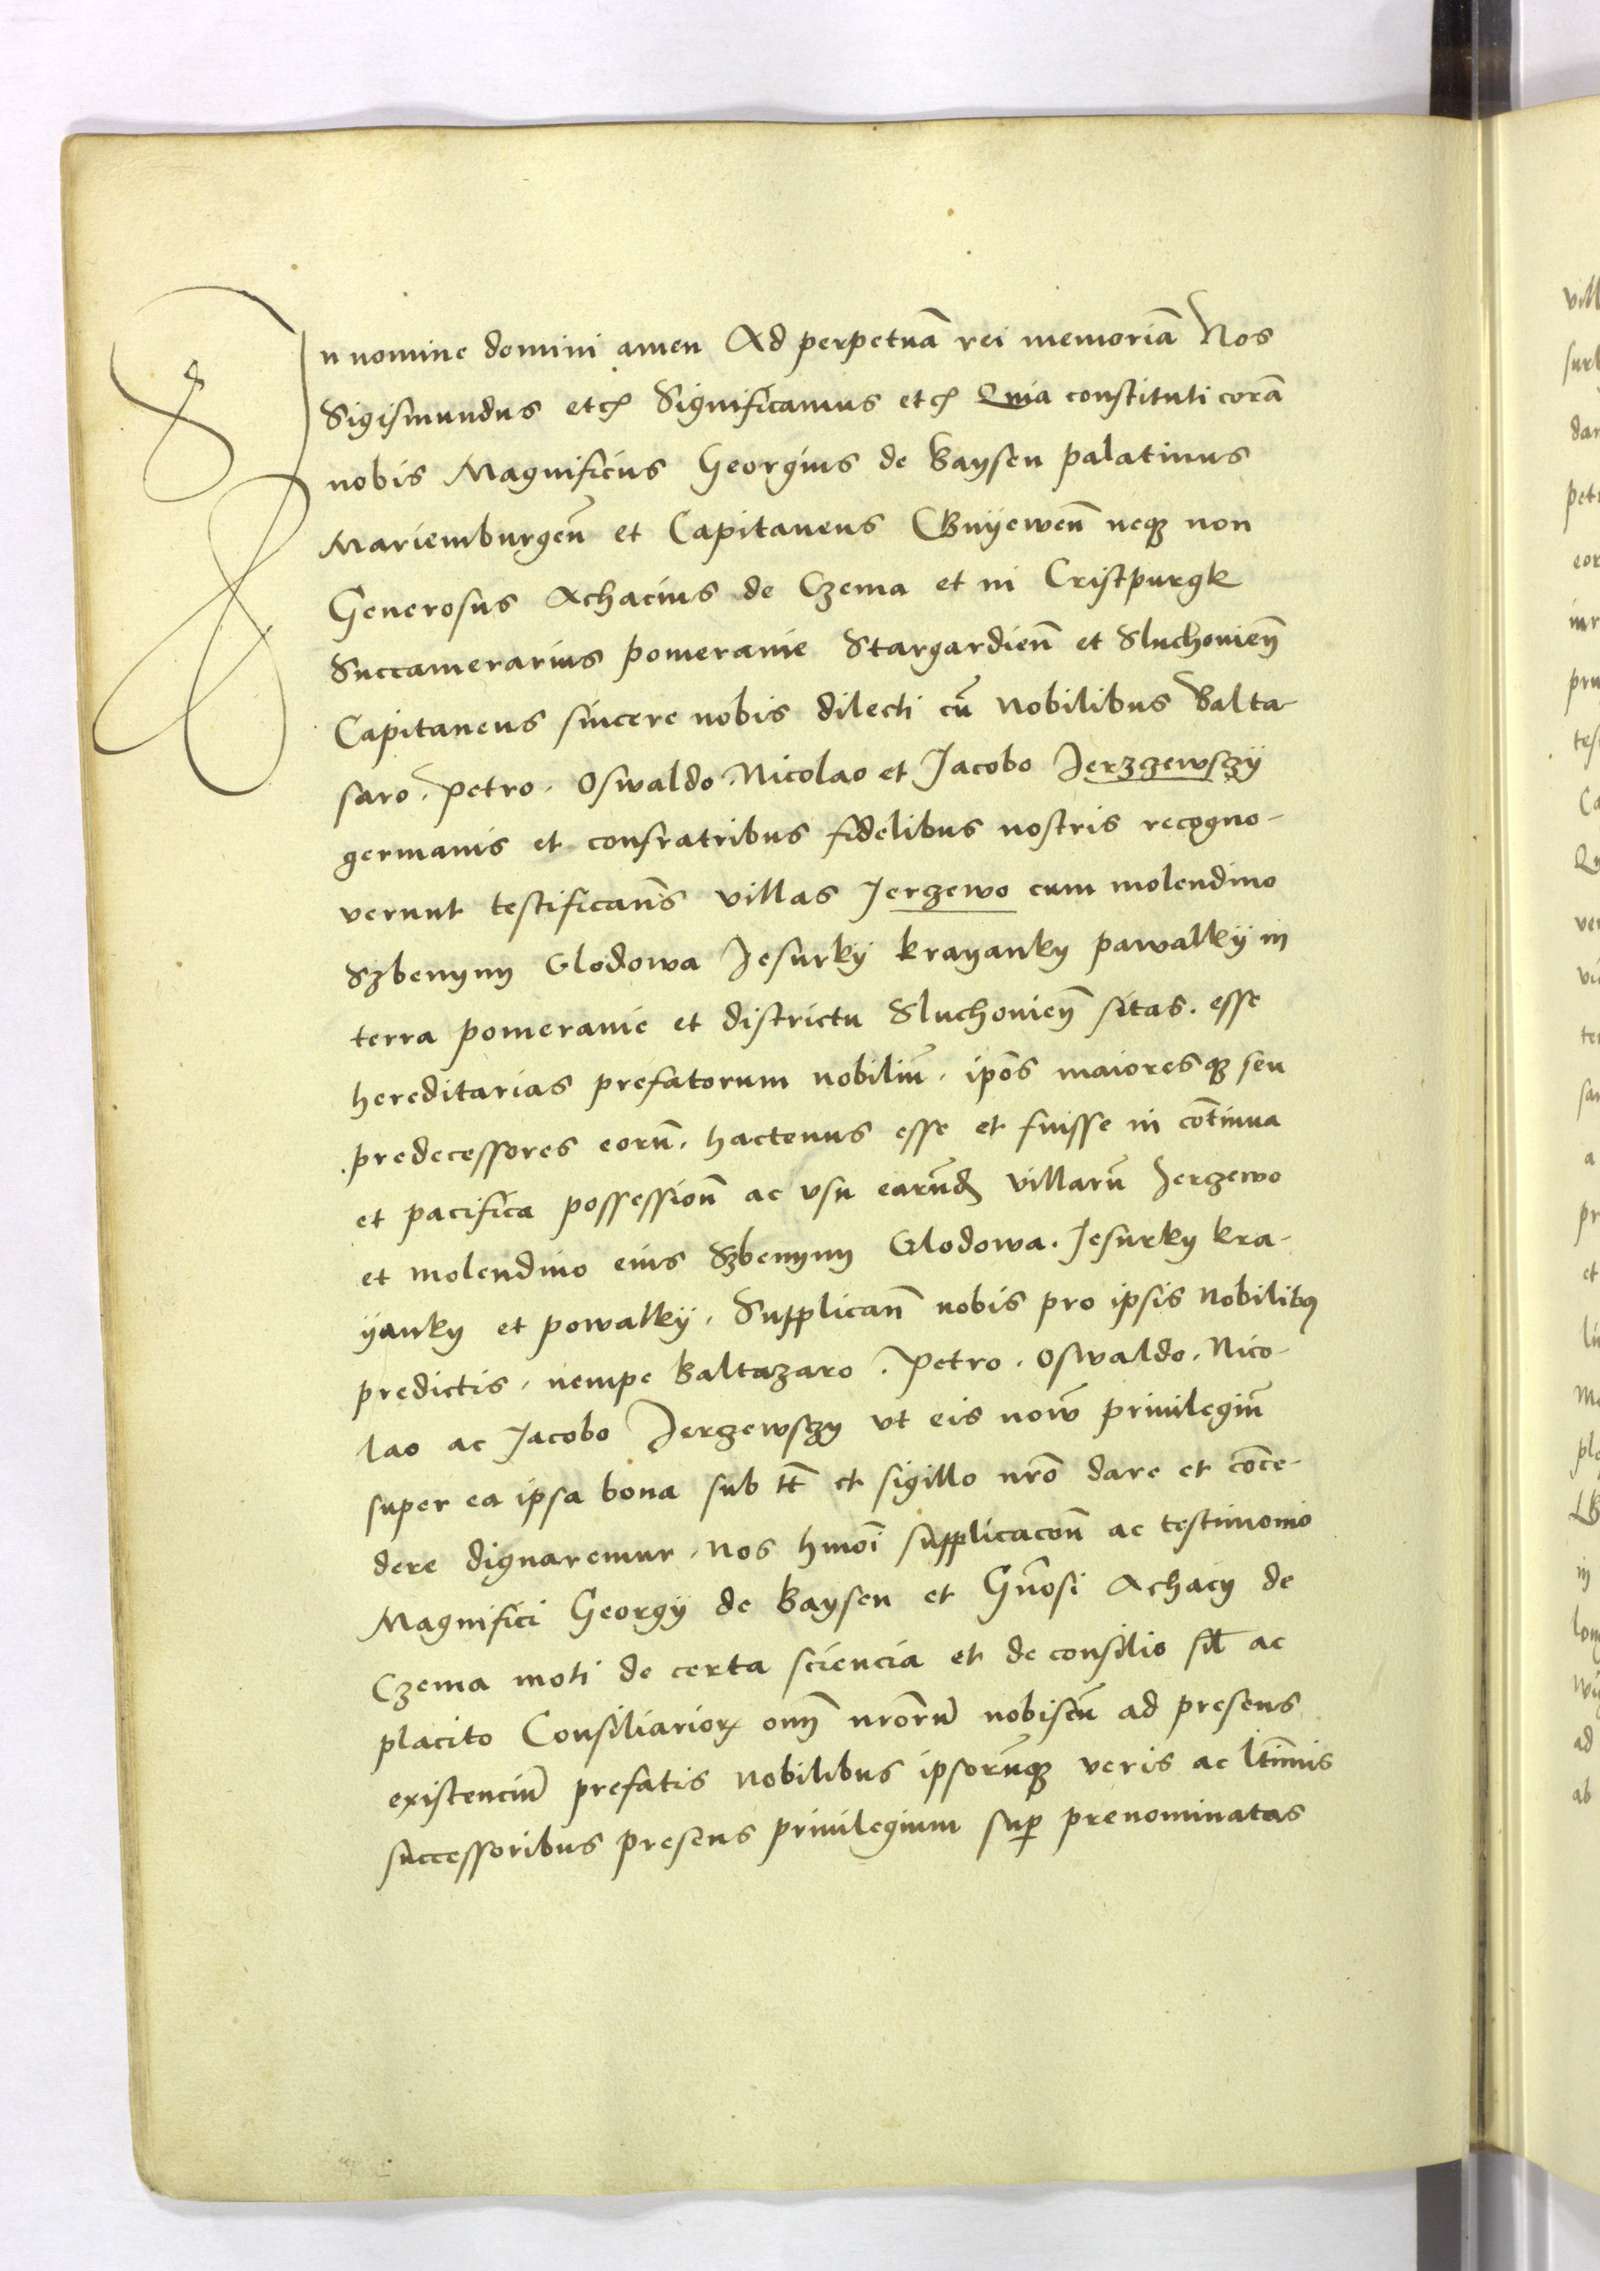 In nomine domini amen Ad perpetuā rei memoriā Nos
Sigismundus etc̄ Significamus etc̄ Quia constituti corā
nobis Magnificus Georgius de Baysen palatinus
Mariemburgeñ et Capitaneus Gnÿeweñ neqȝ non
Generosus Achacius de Czema et in Cristpurgk
Succamerarius pomeranie Stargardieñ et Sluchovieñ
Capitaneus sincere nobis dilecti cū Nobilibus Balta-
saro. Petro. Oswaldo. Nicolao et Jacobo Jerzzewszÿ
germanis et confratribus fidelibus nostris recogno-
verunt testificanēs villas Jerzewo cum molendino
Szbenyny Glodowa Jesurkÿ krayanky pawalkÿ in
terra pomeranie et districtu Sluchovieñ sitas. esse
hereditarias prefatorum nobiliū. ipōs maioresqȝ seu
predecessores eorū. hactenus esse et fuisse in cōtinua
et pacifica possessioñ ac vsu earūd villarū Jerzewo
et molendino eius Szbenyny Glodowa. Jesurky kra-
ÿanky et powalkÿ. Supplicañ nobis pro ipsis Nobilibꝯ
predictis. nempe Baltazaro. Petro. Oswaldo. Nico-
lao ac Jacobo Jerzewszy vt eis novū privilegiū
super ea ipsa bona sub tt̄ et sigillo nrō dare et cōce-
dere dignaremur. Nos hmōi supplicacoñ ac testimonio
Magnifici Georgÿ de Baysen et Gn̄osi Achacÿ de
Czema moti de certa sciencia et de consilio sil̄ ac
placito Consiliarioꝝ om̄ nrōrū nobiscū ad presens
existenciū prefatis Nobilibus ipsorūqȝ veris ac l̄timis
successoribus presens privilegium sup̄ prenominatas